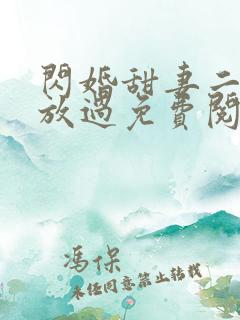 閃婚甜妻二
放過免費閱
馮保
未经同意禁止转载